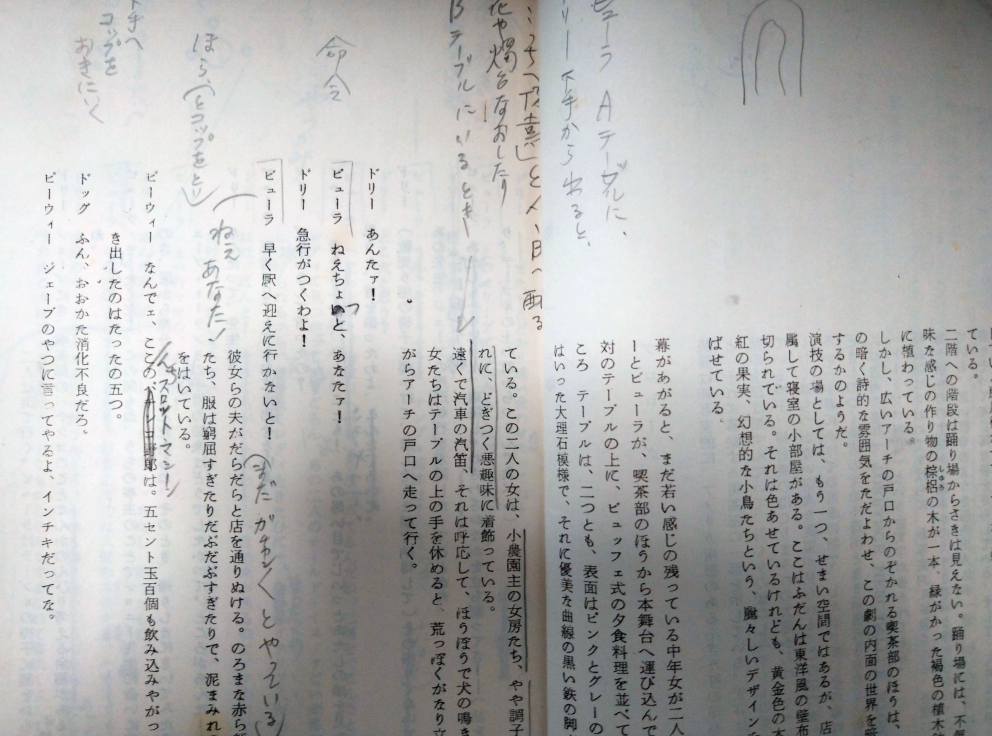 ている。
二階への階段は踊り場からさきは見えない。踊り場には、不気
味な感じの作り物の棕梠の木が一本 緑がかった褐色の植木鉢
しゅろ
に植わっている。
しかし、広いアーチの戸口からのぞかれる喫茶部のほうは、
の暗く詩的な雰囲気をただよわせ、この劇の内面の世界を暗
するかのようだ。
演技の場としては、もう一つ、せまい空間ではあるが、店
属して寝室の小部屋がある。ここはふだんは東洋風の壁布
切られている。それは色あせているけれども、黄金色の木
紅の果実、幻想的な小鳥たちという、賑々しいデザイン
ばせている。
幕があがると、まだ若い感じの残っている中年女が二人
ーとビューラが、喫茶部のほうから本舞台へ運び込んで
対のテーブルの上に、ビュッフェ式の夕食料理を並べて
ころ テーブルは、二つとも、表面はピンクとグレーの
はいった大理石模様で、それに優美な曲線の黒い鉄の脚
ビューラ Aテーブルに、
ドリー 下手から出ると、
と人、Bへ 配る
花や燭台なおしたり
Bテーブルにいるとき
ている。この二人の女は、小農園主の女房たち、やや調子
れに、どぎつく悪趣味に着飾っている。
遠くで汽車の汽笛、それに呼応して、ほうぼうで犬の鳴き
女たちはテーブルの上の手を休めると、荒っぽくがなり立
がらアーチの戸口へ走って行く。
ドリー あんたァ!
ビューラ ねえちょいと、あなたァ!
っ
命令
ドリー 急行がつくわよ!
ビューラ 早く駅へ迎えに行かないと!
(まだがやがやとやっている)
ねえ あなた!
彼女らの夫がだらだらと店を通りぬける。のろまな赤ら顔
たち、服は窮屈すぎたりだぶだぶすぎたりで、泥まみれ
をはいている。
ほら、(とコップをとり)
ピーウィー なんでェ、ここの
野郎は。五セント玉百個も飲み込みやがっ
スロットマシン
き出したのはたったの五つ。
ドッグ ふん、おおかた消化不良だろ。
ピーウィー ジェーブのやつに言ってやるよ、インチキだってな。
下手へ
コップを
おきにいく